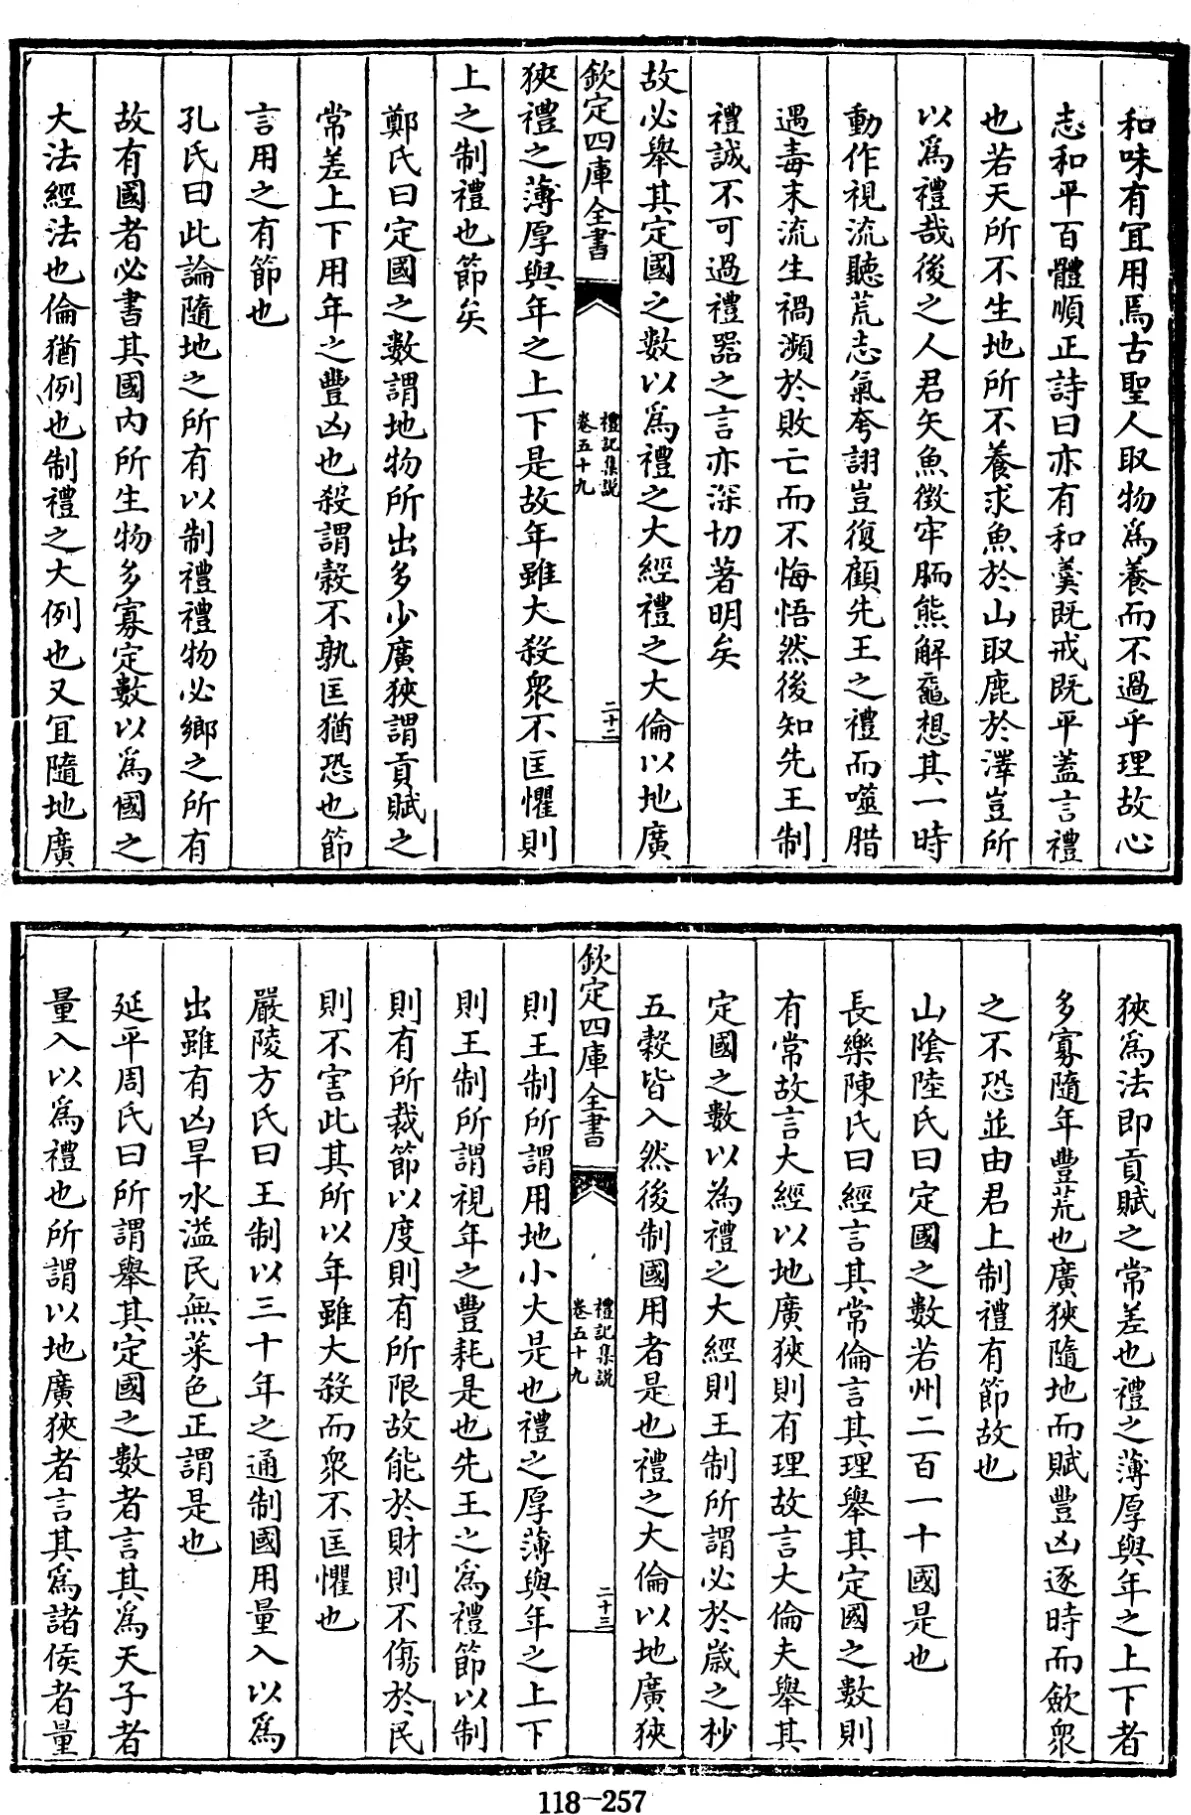 和味有宜用焉古聖人取物為養而不過乎理故心
志和平百體順正詩曰亦有和羹既戒既平蓋言禮
也若天所不生地所不養求魚於山取鹿於澤豈所
以為禮哉後之人君矢魚徴牢胹熊解黿想其一時
動作視流聽荒志氣夸詡豈復顧先王之禮而噬腊
遇毒末流生禍瀕於敗亡而不悔悟然後知先王制
禮誠不可過禮器之言亦深切著明矣
故必舉其定國之數以為禮之大經禮之大倫以地廣
欽定四庫全書
禮記集說
卷五十九
二十二
狹禮之薄厚與年之上下是故年雖大殺衆不匡懼則
上之制禮也節矣
鄭氏曰定國之數謂地物所出多少廣狹謂貢賦之
常差上下用年之豐凶也殺謂穀不孰匡猶恐也節
言用之有節也
孔氏曰此論隨地之所有以制禮禮物必鄉之所有
故有國者必書其國内所生物多寡定數以為國之
大法經法也倫猶例也制禮之大例也又宜隨地廣
狹為法即貢賦之常差也禮之薄厚與年之上下者
多寡隨年豐荒也廣狹隨地而賦豐凶逐時而歛衆
之不恐並由君上制禮有節故也
山陰陸氏曰定國之數若州二百一十國是也
長樂陳氏曰經言其常倫言其理舉其定國之數則
有常故言大經以地廣狹則有理故言大倫夫舉其
定國之數以為禮之大經則王制所謂必於歲之杪
五穀皆入然後制國用者是也禮之大倫以地廣狹
欽定四庫全書
禮記集說
卷五十九
二十三
則王制所謂用地小大是也禮之厚薄與年之上下
則王制所謂視年之豐耗是也先王之為禮節以制
則有所裁節以度則有所限故能於財則不傷於民
則不害此其所以年雖大殺而衆不匡懼也
嚴陵方氏曰王制以三十年之通制國用量入以為
出雖有凶旱水溢民無菜色正謂是也
延平周氏曰所謂舉其定國之數者言其為天子者
量入以為禮也所謂以地廣狹者言其為諸侯者量
118-257